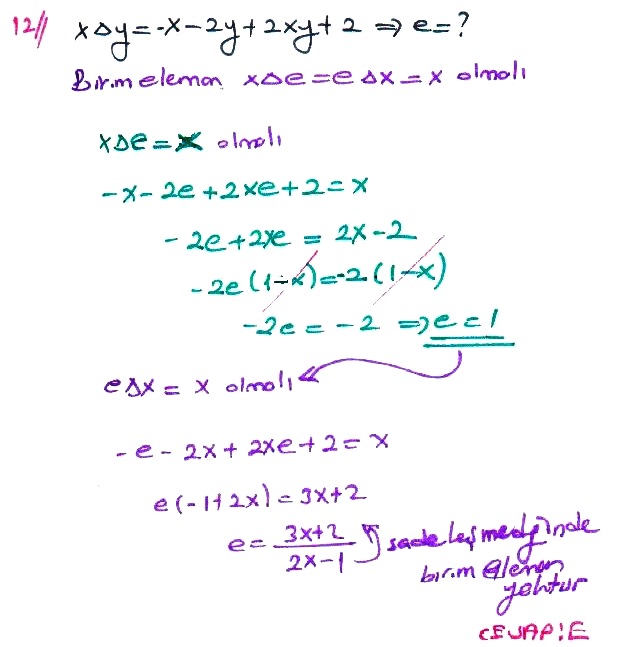 12// x∆y=-x-2y+2xy+2 ⇒ e=?
Birim eleman x∆e=e∆x=x olmalı
x∆e=x olmalı
-x-2e+2xe+2=x
-2e+2xe = 2x-2
-2e(1-x)=-2(1-x)
-2e=-2 ⇒ e=1
e∆x = x olmalı
-e-2x+2xe+2=x
e(-1+2x)=3x+2
e= 3x+2 / 2x-1 sadeleşmediğinde
birim eleman
yoktur
CEVAP:E